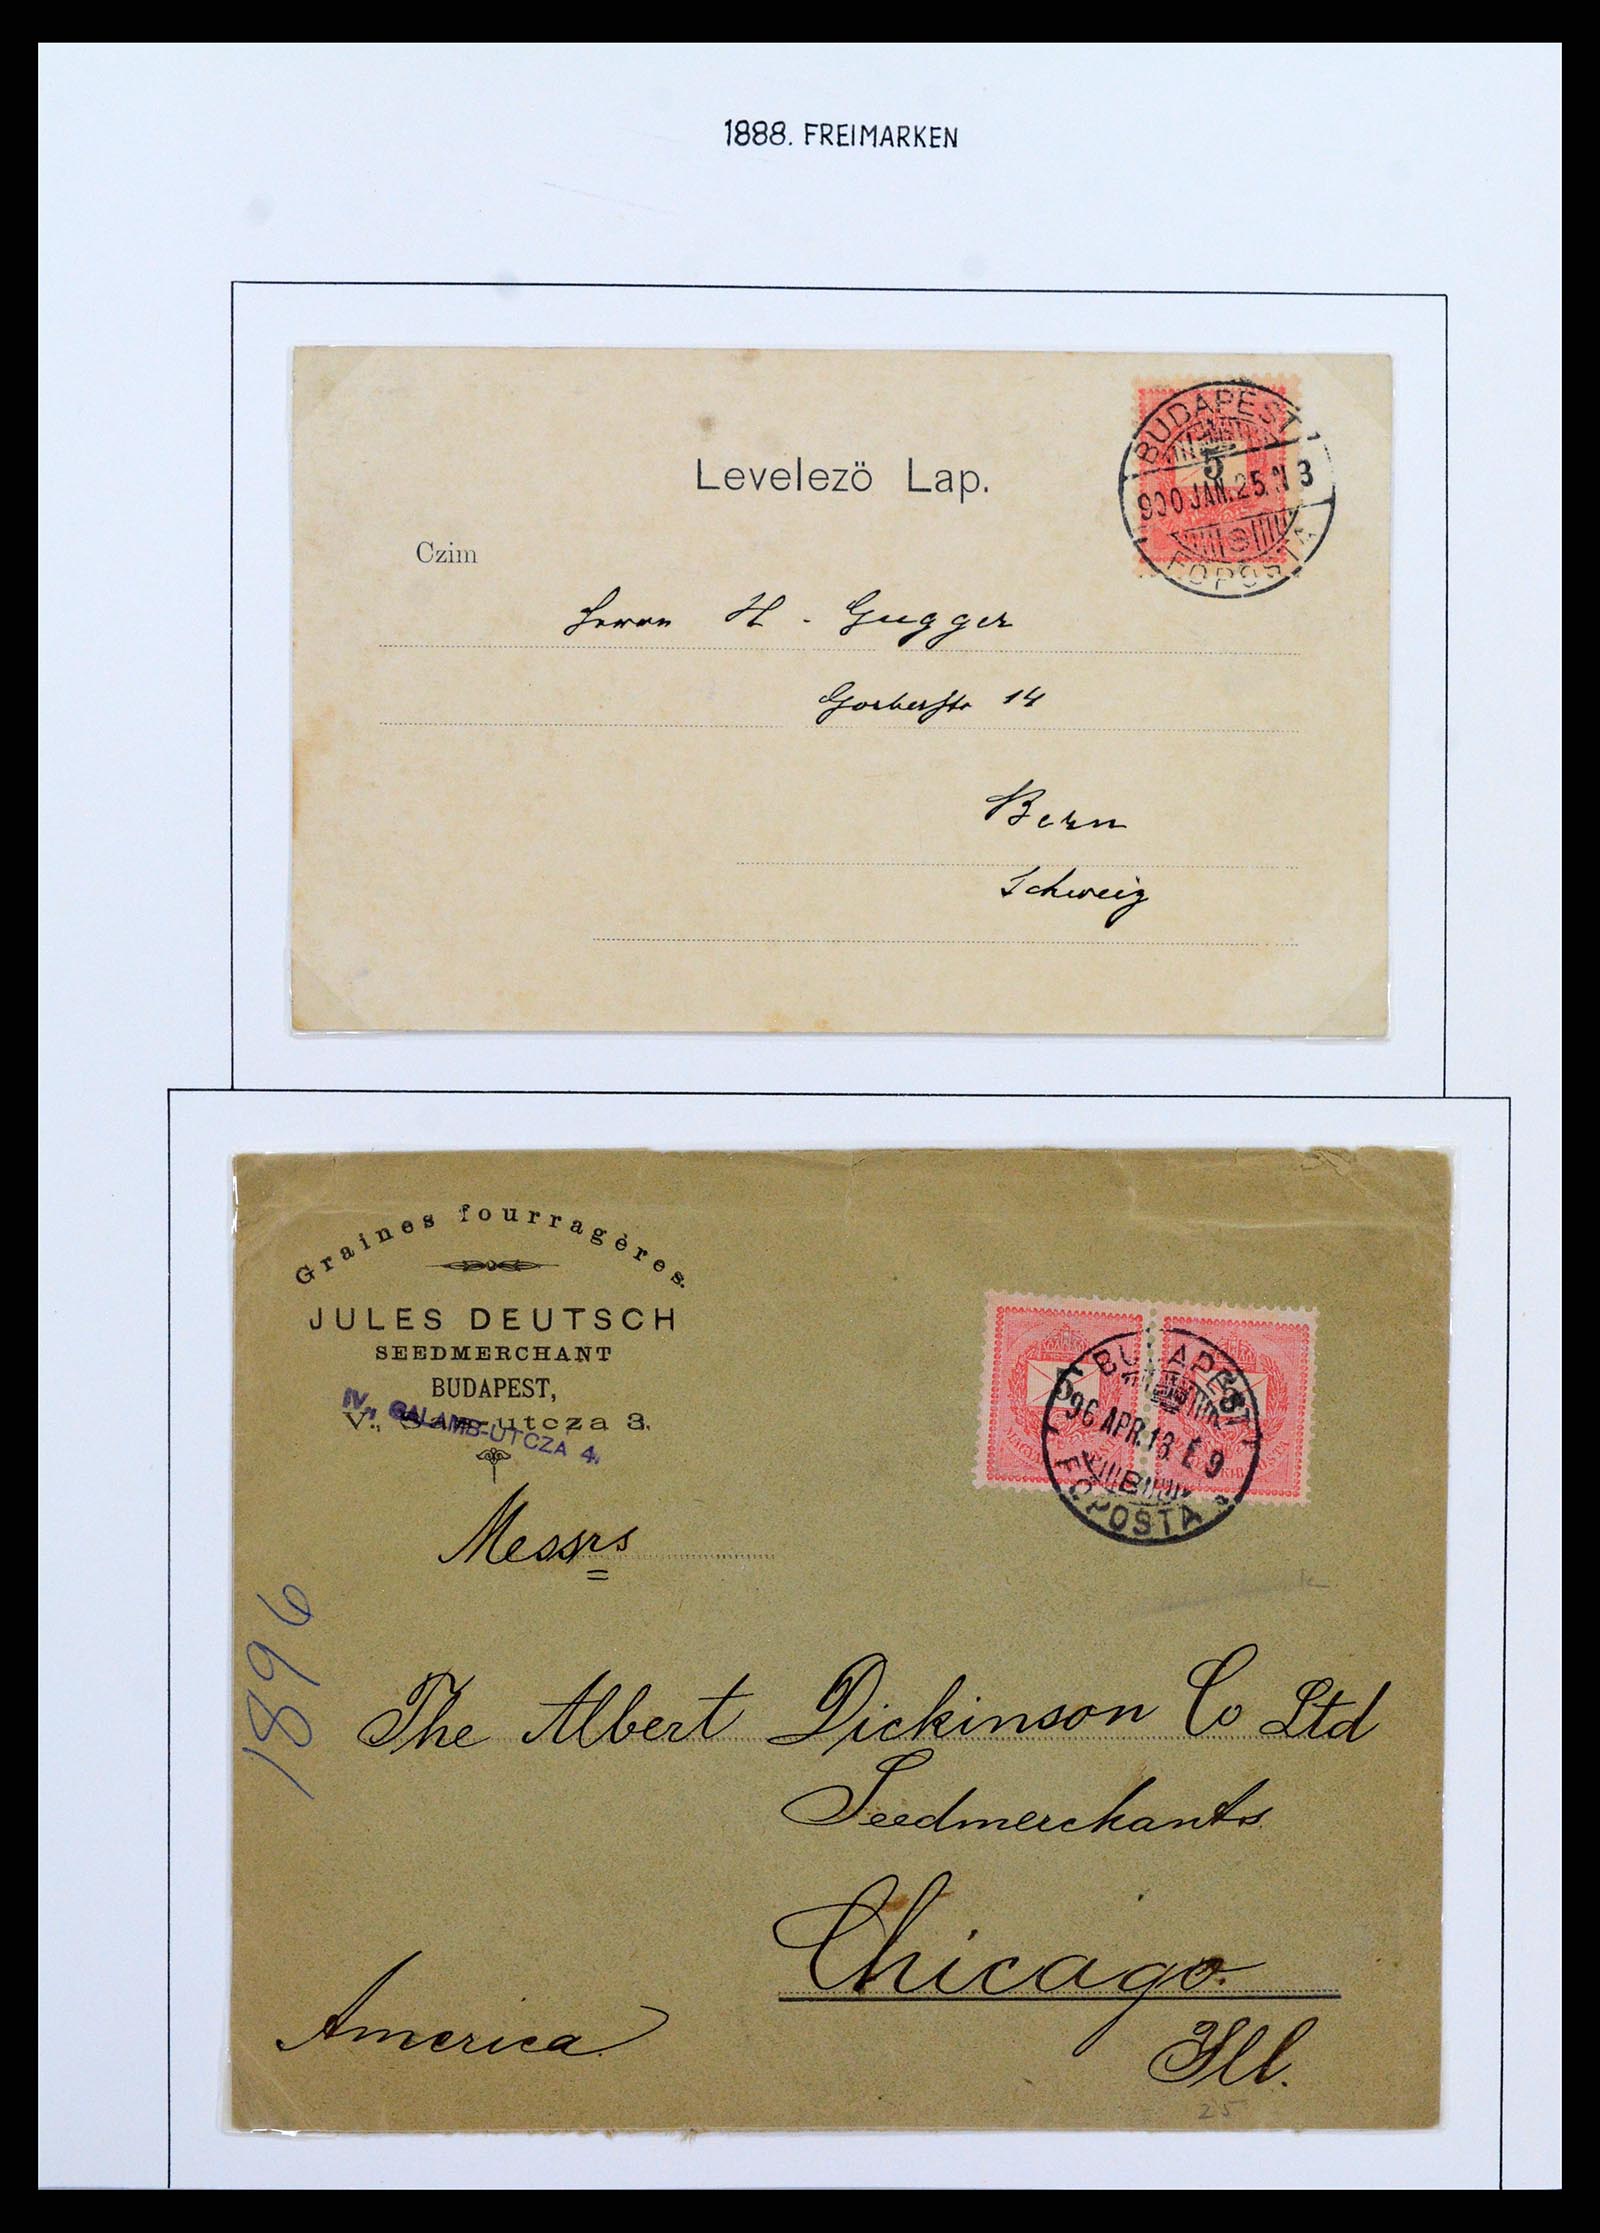 1888. FREIMARKEN
Levelezö Lap.
BUDAPEST
5
900 JAN. 25. N 3
FŐPOSTA
Czim
Herrn H. Gugger
14
Bern
Schweiz
Graines fourragères.
JULES DEUTSCH
SEEDMERCHANT
BUDAPEST,
V., Sas-utcza 3.
IV., GALAMB-UTCZA 4.
BUDAPEST
5
96 APR. 13. E 9
B
FŐPOSTA
Messrs
1896
The Albert Dickinson Co Ltd
Seedmerchants
Chicago.
America.
Ill.
25